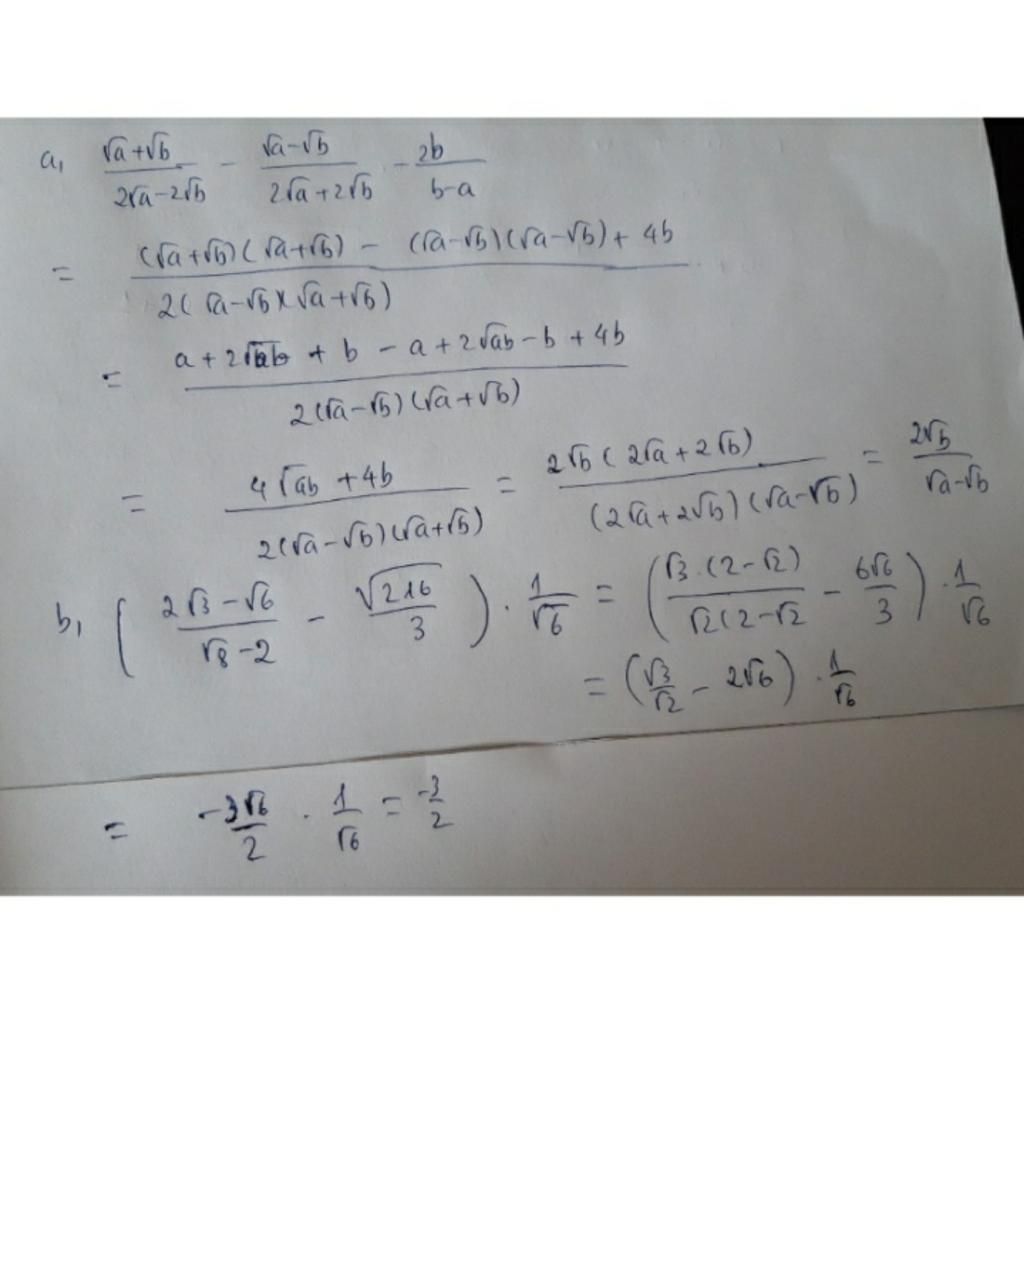 a, (√a+√b)/(2√a-2√b) - (√a-√b)/(2√a+2√b) - 2b/(b-a)
= ((√a+√b)(√a+√b) - (√a-√b)(√a-√b) + 4b)/(2(√a-√b)(√a+√b))
= (a+2√ab + b - a + 2√ab - b + 4b)/(2(√a-√b)(√a+√b))
= (4√ab + 4b)/(2(√a-√b)(√a+√b)) = (2√b(2√a+2√b))/((2√a+2√b)(√a-√b)) = 2√b/(√a-√b)
b, ((2√3-√6)/(√8-2) - √216/3) · 1/√6 = ((√3·(2-√2))/(√2(2-√2) - 6√6/3) · 1/√6
= (√3/√2 - 2√6) · 1/√6
= -3√6/2 · 1/√6 = -3/2